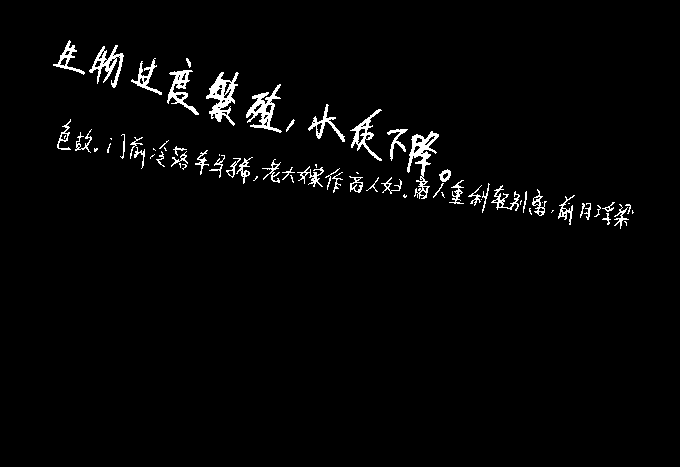 生物过度繁殖，水质下降。
色故。门前冷落车马稀，老大嫁作商人妇。商人重利轻别离，前月浮梁